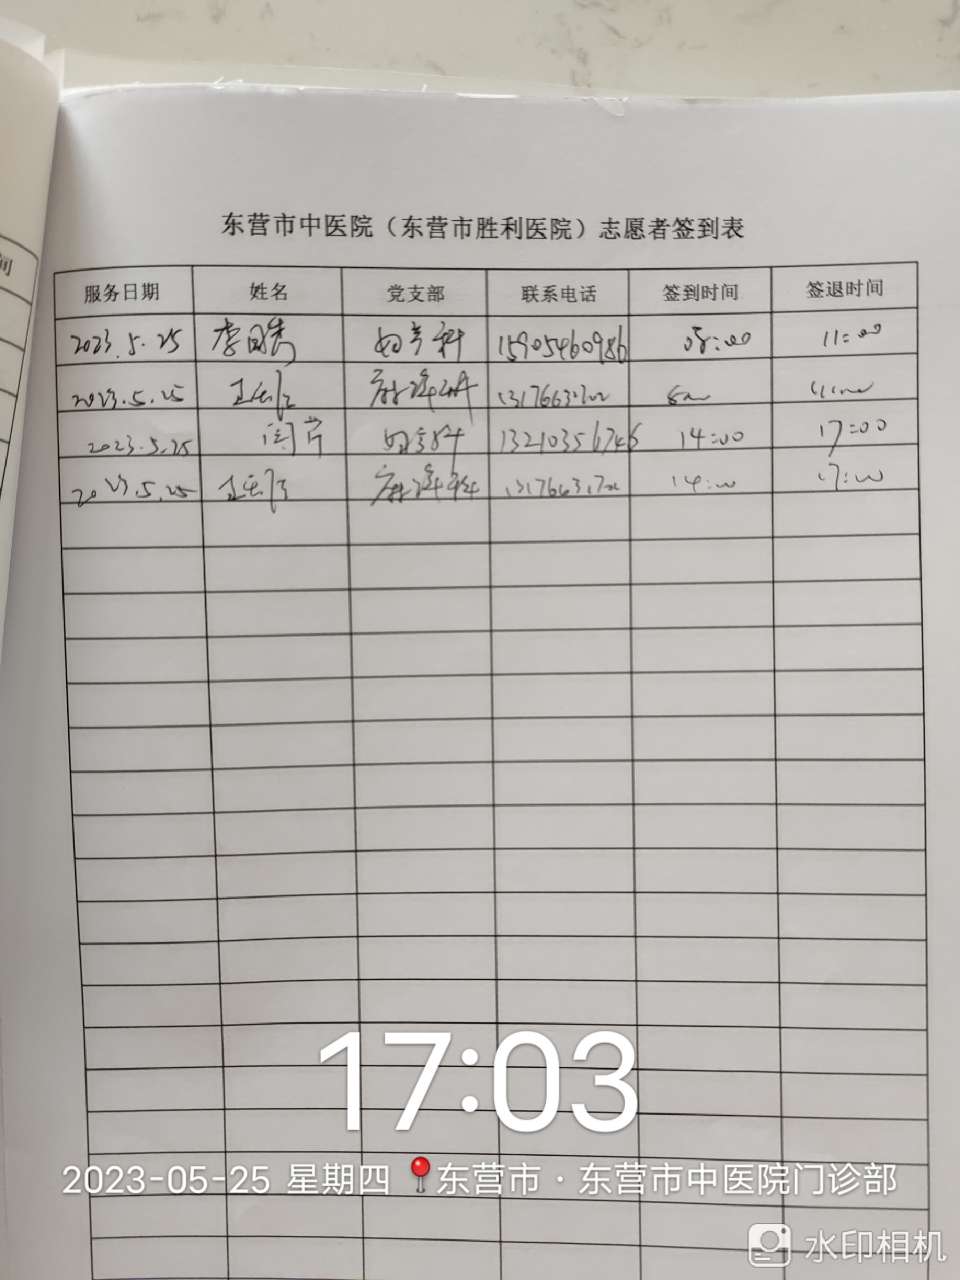 间
东营市中医院（东营市胜利医院）志愿者签到表
服务日期 姓名 党支部 联系电话 签到时间 签退时间
2023.5.25 李国秀 妇产科 15905460986 08:00 11:00
2023.5.25
2023.5.25 闫芹 妇产科 13210356746 14:00 17:00
2023.5.25 14:00 17:00
17:03
2023-05-25 星期四 东营市·东营市中医院门诊部
水印相机